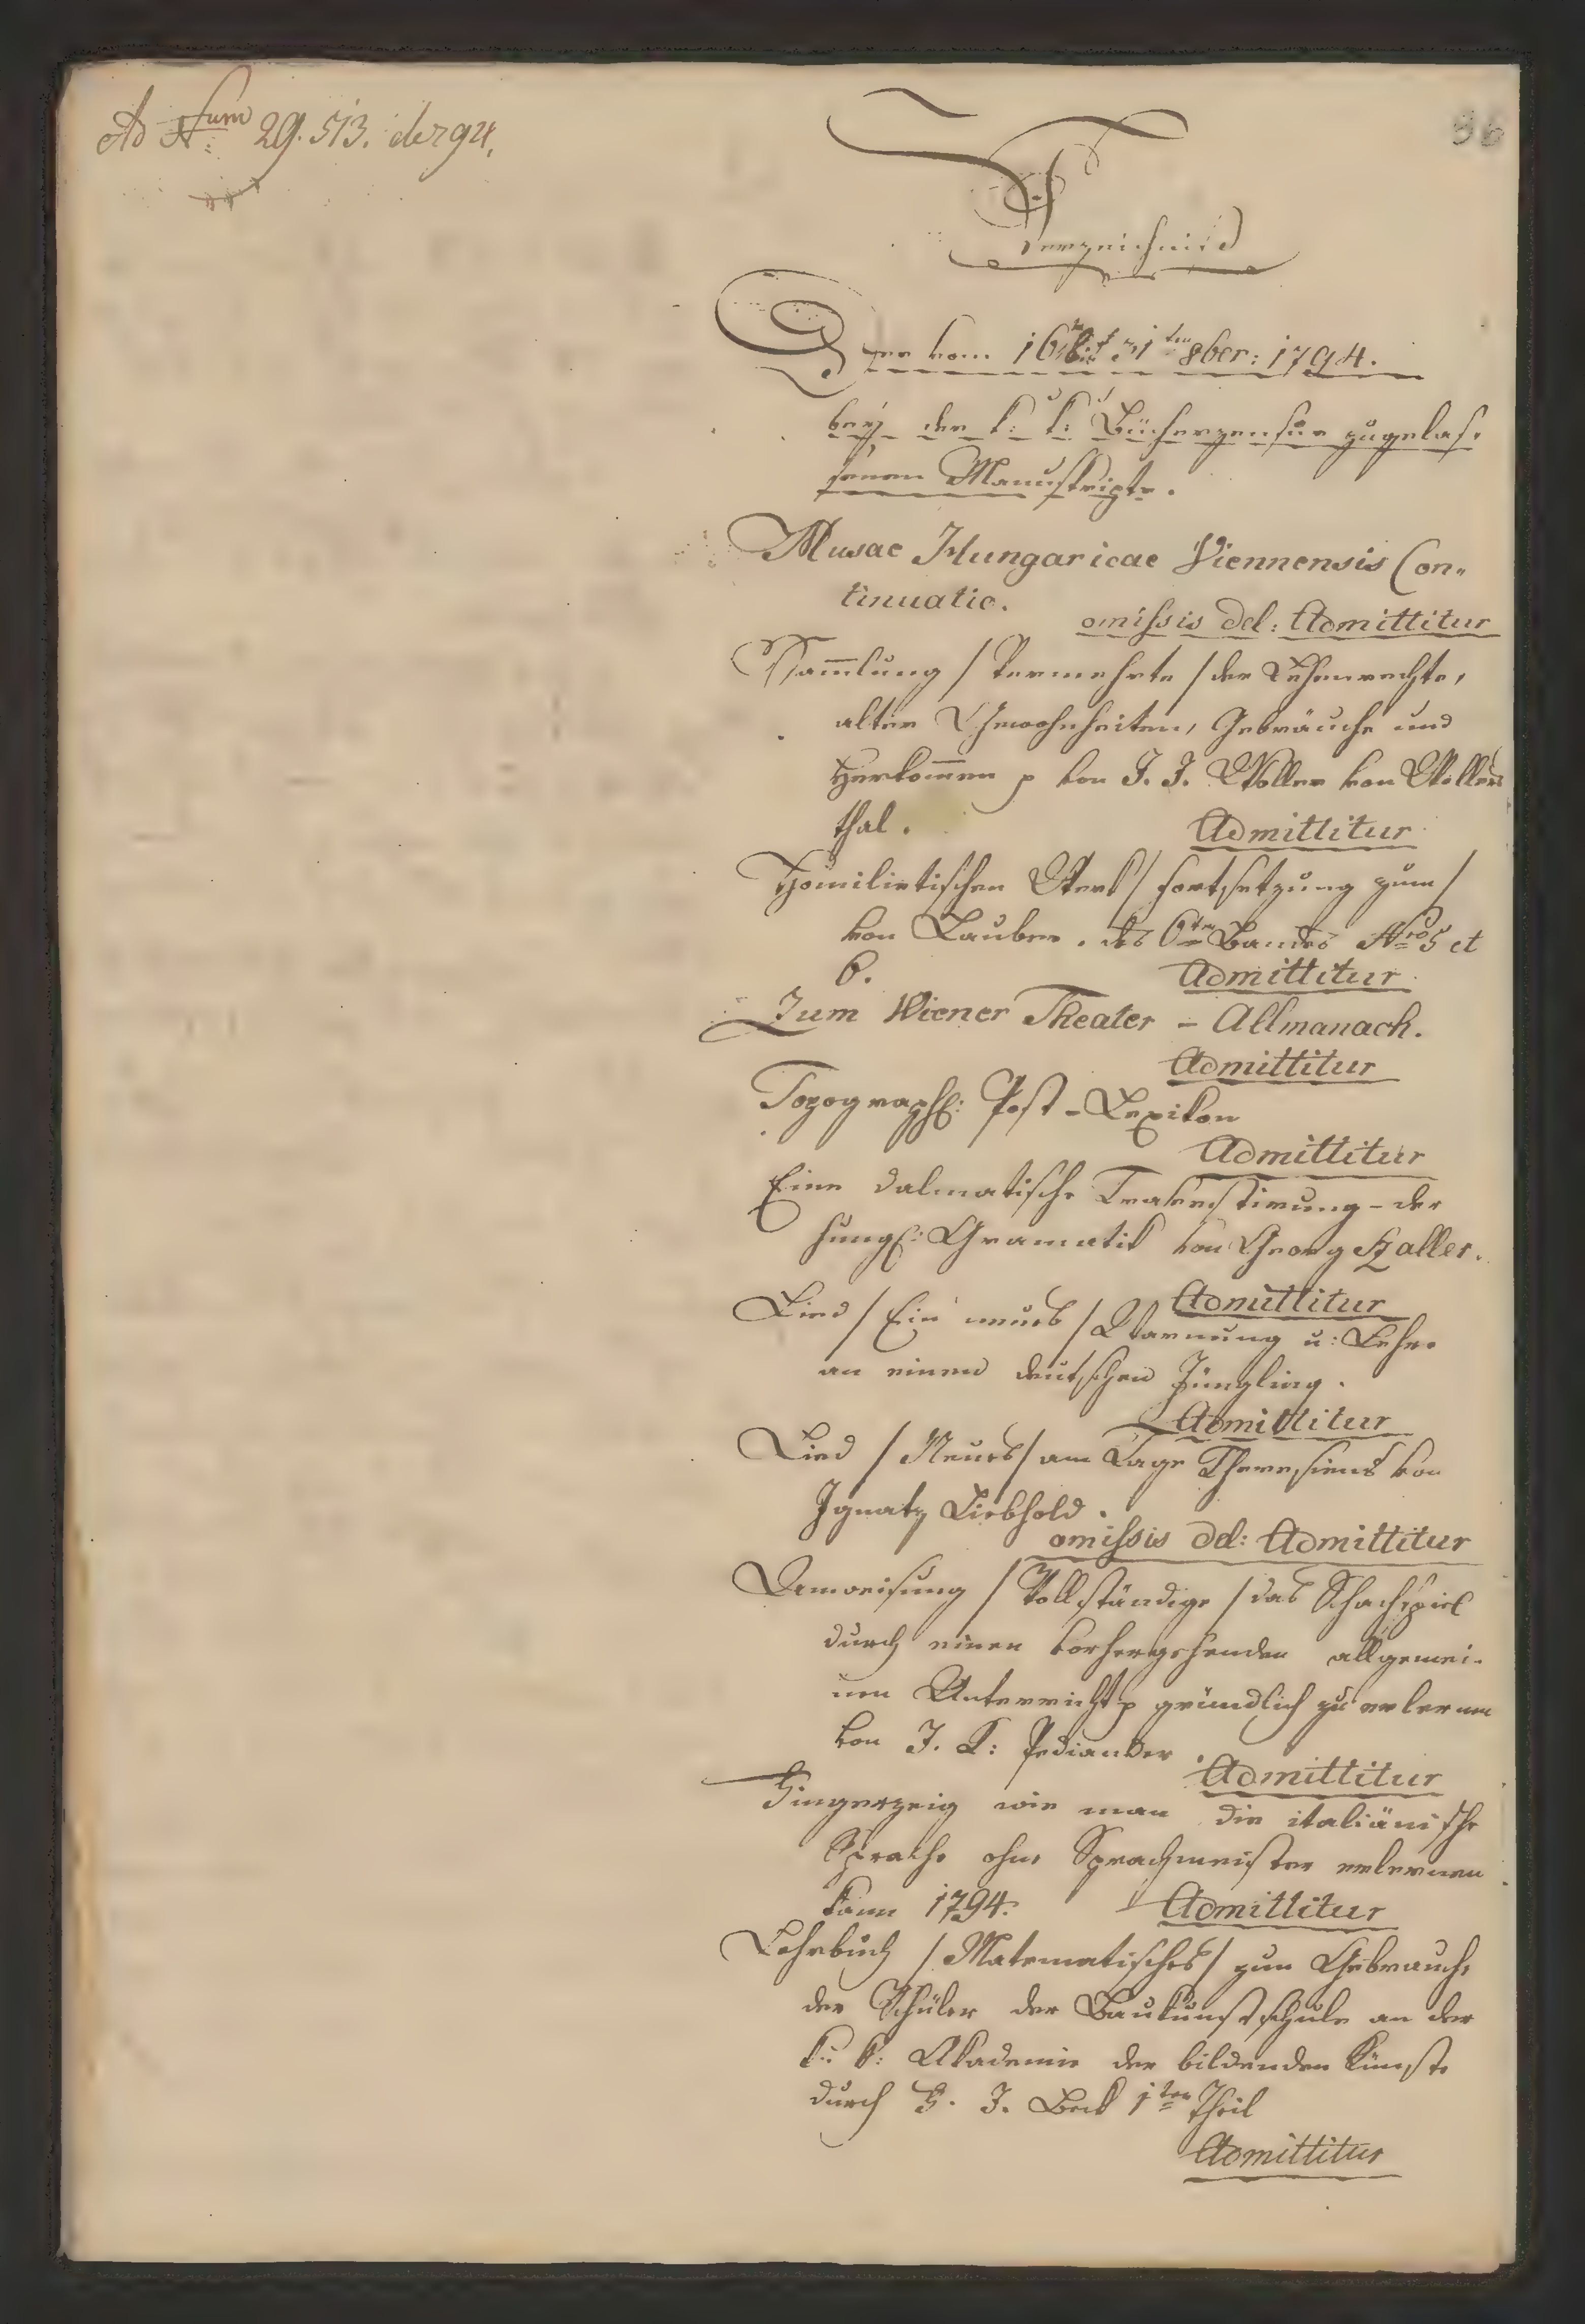 Ad Num 29.513. de 1794.
96
Verzeichniß
Der vom 16ten bis 31ten 8ber: 1794.
bey der k: k: Bücherzensur zugelas-
senen Manuskripte.
Musae Hungaricae Viennensis Con-
tinuatio.
omissis del: Admittitur
Sam̅lung / Vermehrte / der Lehenrechte,
alter Gewohnheiten, Gebräuche und
Herkom̅en p von J. J. Woller von Wollers
thal.
Admittitur
Homiletischen Werk / Fortsetzung zum /
von Lauber. des 6ten Bandes Nro 5 et
6.
Admittitur
Zum Wiener Theater - Allmanach.
Admittitur
Topograph: Post-Lexikon
Admittitur
Eine dalmatische Travestirung - der
hung: Gramatik von Georg Szaller.
Admittitur
Lied / Ein neues / Warnung u: Lehre
an einen deutschen Jüngling.
Admittitur
Lied / Neues / am Tage Theresiens von
Ignatz Liebhold.
omissis del: Admittitur
Anweisung / Vollständige / das Schachspiel
durch einen vorhergehenden allgemei-
nen Unterricht p gründlich zu erlernen
von J. K: Pediander.
Admittitur
Fingerzeig wie man die italiänische
Sprache ohne Sprachmeister erlernen
kann 1794.
Admittitur
Lehrbuch / Matematisches / zum Gebrauche
der Schüler der Baukunstschule an der
k: k: Akademie der bildenden Künste
durch G. J. Beck 1ter Theil
Admittitur